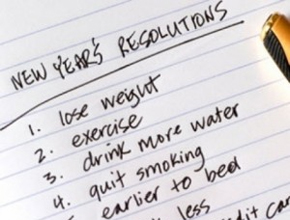 NEW YEAR'S RESOLUTIONS
1. lose weight
2. exercise
3. drink more water
4. quit smoking
5. earlier to bed
less